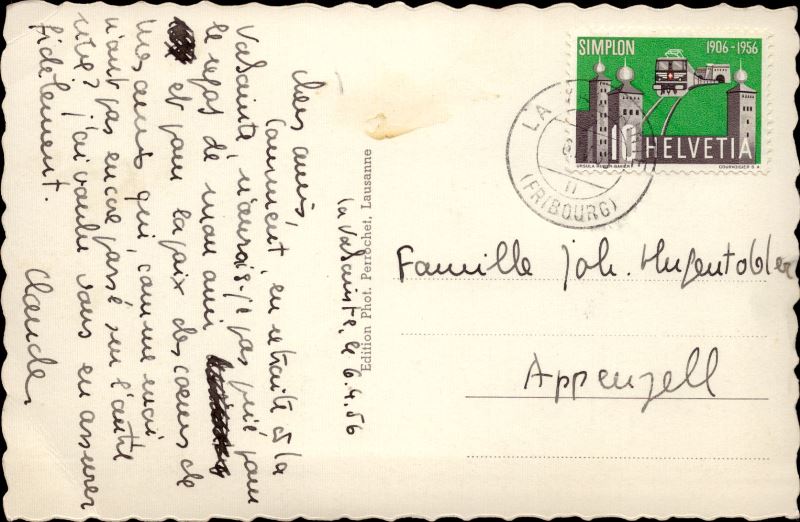 la Valsainte, le 6.4.56
Chers amis,
Comment, en retraite à la
Valsainte, n'aurais-je pas prié pour
le repos de mon ami
et pour la paix des coeurs de
mes amis qui, comme moi
n'ont pas encore passé sur l'autre
rive? j'ai voulu vous en assurer
fidèlement.
Claude.
Edition Phot. Perrochet, Lausanne
SIMPLON 1906-1956
10 HELVETIA
COURVOISIER S.A.
LA
11
(FRIBOURG)
Famille Joh. Hugentobler
Appenzell